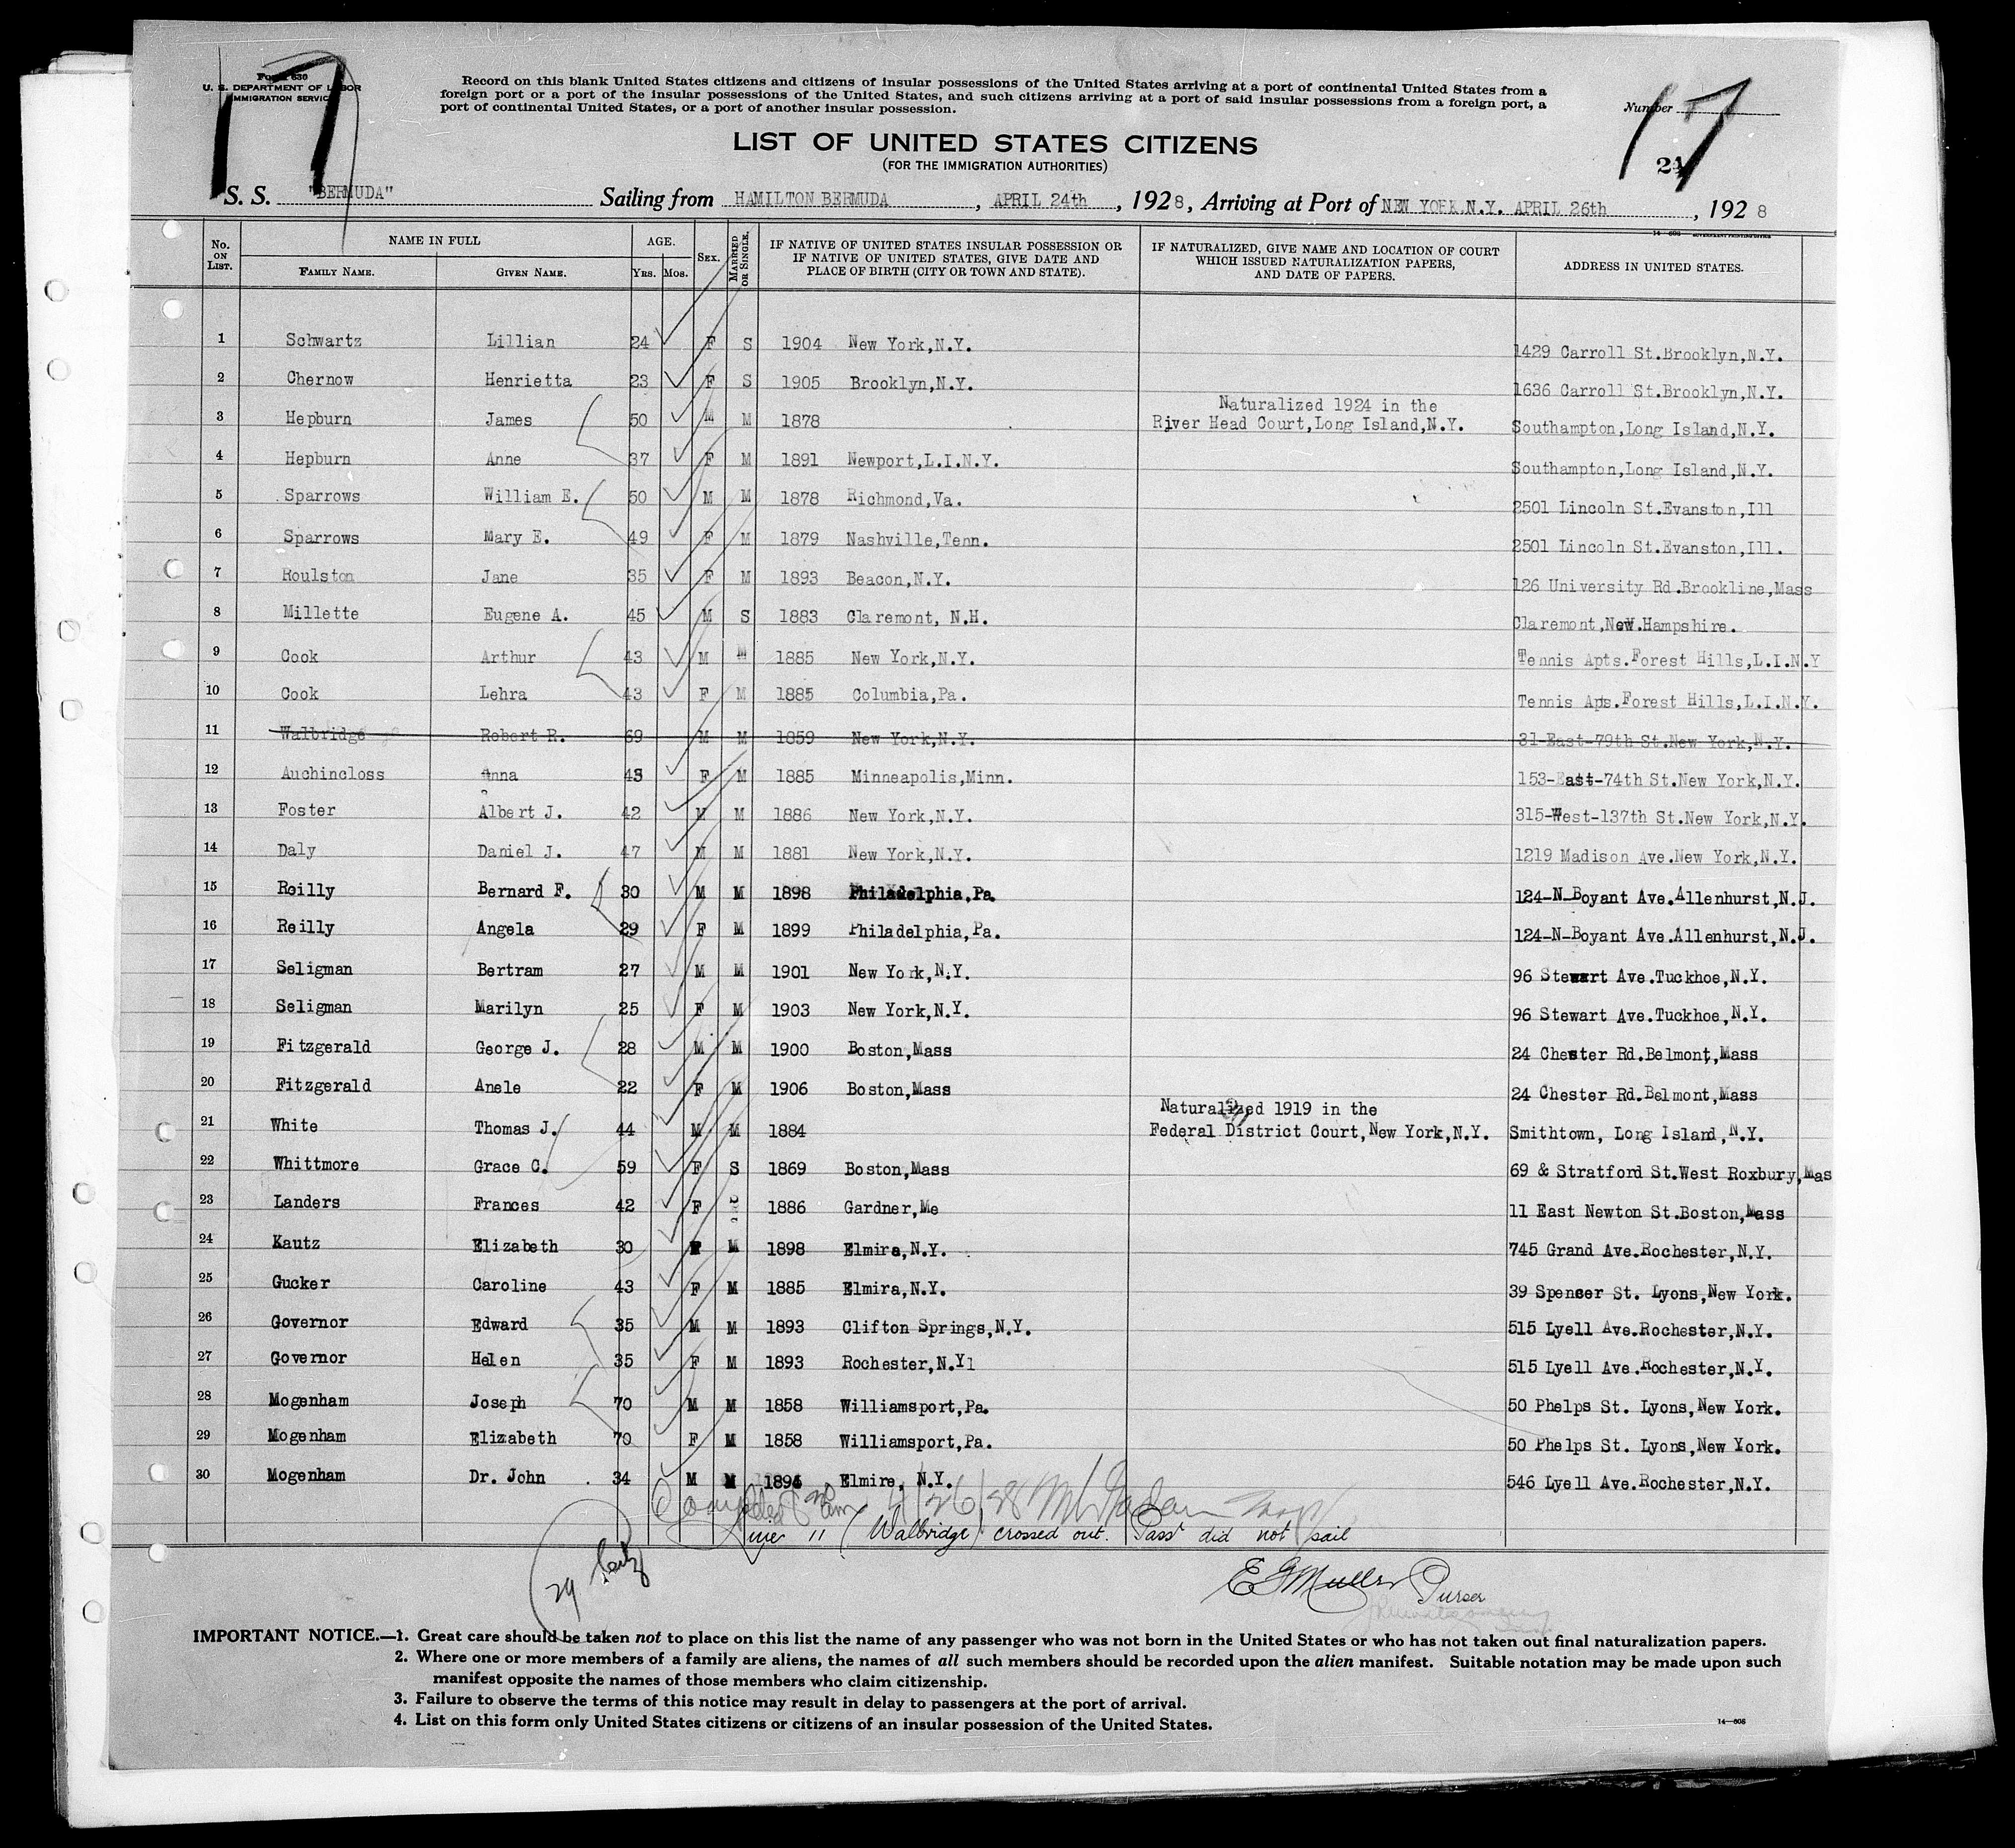 17
Form 630
U. S. DEPARTMENT OF LABOR
IMMIGRATION SERVICE
Record on this blank United States citizens and citizens of insular possessions of the United States arriving at a port of continental United States from a
foreign port or a port of the insular possessions of the United States, and such citizens arriving at a port of said insular possessions from a foreign port, a
port of continental United States, or a port of another insular possession.
Number 17
LIST OF UNITED STATES CITIZENS
(FOR THE IMMIGRATION AUTHORITIES)
S. S. "BERMUDA" Sailing from HAMILTON BERMUDA, APRIL 24th, 1928, Arriving at Port of NEW YORK N.Y. APRIL 26th, 1928
No. ON LIST. NAME IN FULL FAMILY NAME. GIVEN NAME. AGE. YRS. MOS. SEX. MARRIED OR SINGLE. IF NATIVE OF UNITED STATES INSULAR POSSESSION OR IF NATIVE OF UNITED STATES, GIVE DATE AND PLACE OF BIRTH (CITY OR TOWN AND STATE). IF NATURALIZED, GIVE NAME AND LOCATION OF COURT WHICH ISSUED NATURALIZATION PAPERS, AND DATE OF PAPERS. ADDRESS IN UNITED STATES.
1 Schwartz Lillian 24 F S 1904 New York,N.Y. 1429 Carroll St.Brooklyn,N.Y.
2 Chernow Henrietta 23 F S 1905 Brooklyn,N.Y. 1636 Carroll St.Brooklyn,N.Y.
3 Hepburn James 50 M M 1878 Naturalized 1924 in the River Head Court,Long Island,N.Y. Southampton,Long Island,N.Y.
4 Hepburn Anne 37 F M 1891 Newport,L.I.N.Y. Southampton,Long Island,N.Y.
5 Sparrows William E. 50 M M 1878 Richmond,Va. 2501 Lincoln St.Evanston,Ill
6 Sparrows Mary E. 49 F M 1879 Nashville,Tenn. 2501 Lincoln St.Evanston,Ill.
7 Roulston Jane 35 F M 1893 Beacon,N.Y. 126 University Rd.Brookline,Mass
8 Millette Eugene A. 45 M S 1883 Claremont, N.H. Claremont,New.Hampshire.
9 Cook Arthur 43 M M 1885 New York,N.Y. Tennis Apts.Forest Hills,L.I.N.Y
10 Cook Lehra 43 F M 1885 Columbia,Pa. Tennis Aps.Forest Hills,L.I.N.Y.
11 Walbridge Robert R. 69 M M 1859 New York,N.Y. 31-East-79th St.New York,N.Y.
12 Auchincloss Anna 43 F M 1885 Minneapolis,Minn. 153-East-74th St.New York,N.Y.
13 Foster Albert J. 42 M M 1886 New York,N.Y. 315-West-137th St.New York,N.Y.
14 Daly Daniel J. 47 M M 1881 New York,N.Y. 1219 Madison Ave.New York,N.Y.
15 Reilly Bernard F. 30 M M 1898 Philadelphia,Pa. 124-N-Boyant Ave.Allenhurst,N.J.
16 Reilly Angela 29 F M 1899 Philadelphia,Pa. 124-N-Boyant Ave.Allenhurst,N.J.
17 Seligman Bertram 27 M M 1901 New York,N.Y. 96 Stewart Ave.Tuckhoe,N.Y.
18 Seligman Marilyn 25 F M 1903 New York,N.Y. 96 Stewart Ave.Tuckhoe,N.Y.
19 Fitzgerald George J. 28 M M 1900 Boston,Mass 24 Chester Rd.Belmont,Mass
20 Fitzgerald Anele 22 F M 1906 Boston,Mass 24 Chester Rd.Belmont,Mass
21 White Thomas J. 44 M M 1884 Naturalized 1919 in the Federal District Court,New York,N.Y. Smithtown, Long Island,N.Y.
22 Whittmore Grace C. 59 F S 1869 Boston,Mass 69 & Stratford St.West Roxbury,Mas
23 Landers Frances 42 F 1886 Gardner,Me 11 East Newton St.Boston,Mass
24 Kautz Elizabeth 30 F M 1898 Elmira,N.Y. 745 Grand Ave.Rochester,N.Y.
25 Gucker Caroline 43 F M 1885 Elmira,N.Y. 39 Spencer St. Lyons,New York.
26 Governor Edward 35 M M 1893 Clifton Springs,N.Y. 515 Lyell Ave.Rochester,N.Y.
27 Governor Helen 35 F M 1893 Rochester,N.Yl 515 Lyell Ave.Rochester,N.Y.
28 Mogenham Joseph 70 M M 1858 Williamsport,Pa. 50 Phelps St. Lyons,New York.
29 Mogenham Elizabeth 70 F M 1858 Williamsport,Pa. 50 Phelps St. Lyons,New York.
30 Mogenham Dr. John 34 M M 1894 Elmire, N.Y. 546 Lyell Ave.Rochester,N.Y.
Completed 4/26/28
Line 11 (Walbridge) crossed out. Pass' did not sail
29
E J Muller Purser
IMPORTANT NOTICE.—1. Great care should be taken not to place on this list the name of any passenger who was not born in the United States or who has not taken out final naturalization papers.
2. Where one or more members of a family are aliens, the names of all such members should be recorded upon the alien manifest. Suitable notation may be made upon such
manifest opposite the names of those members who claim citizenship.
3. Failure to observe the terms of this notice may result in delay to passengers at the port of arrival.
4. List on this form only United States citizens or citizens of an insular possession of the United States.
14—608